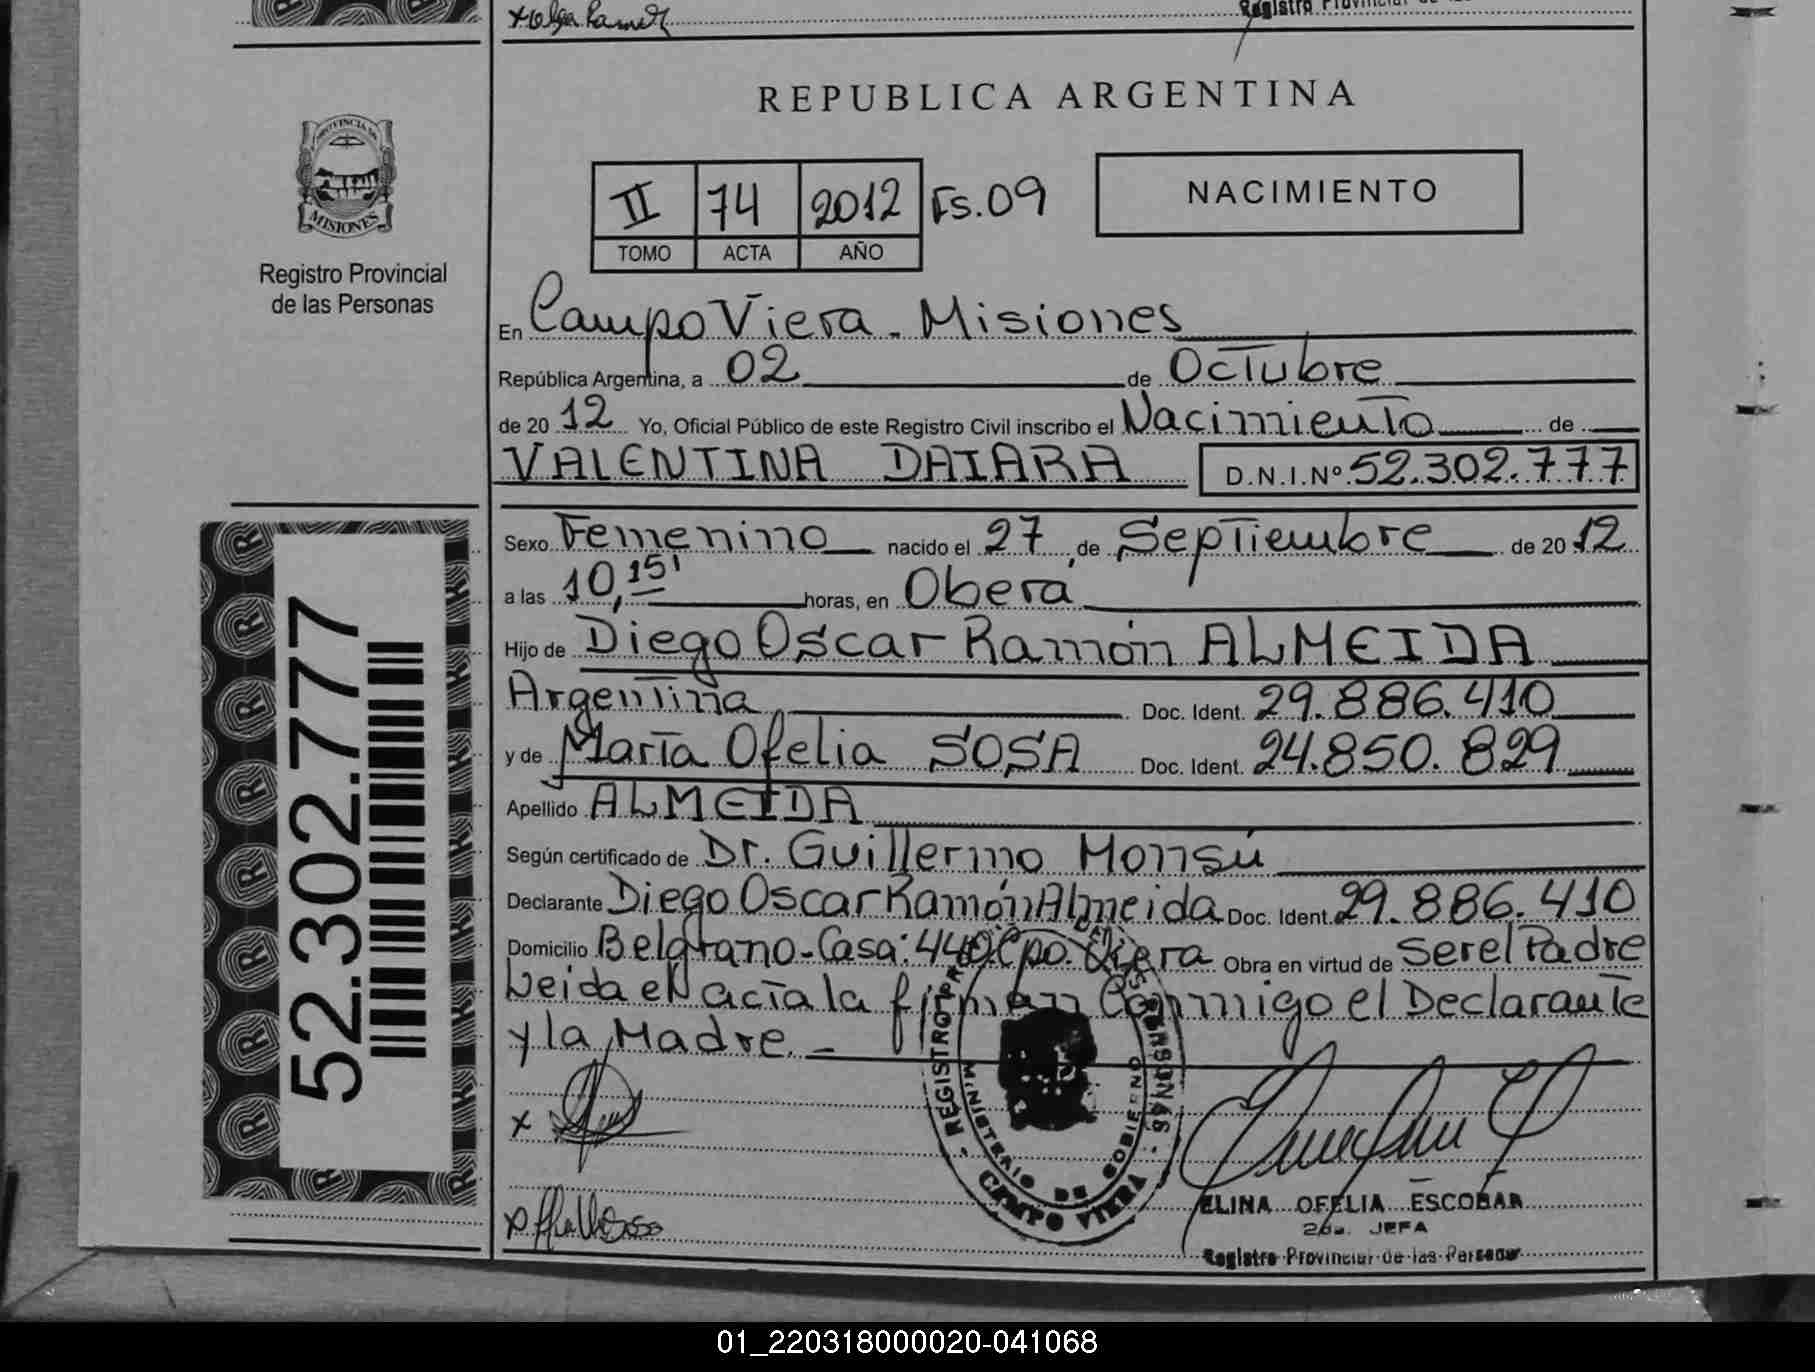 Helga Ramírez
Registro Provincial de las
REPUBLICA ARGENTINA
PROVINCIA DE
MISIONES
Registro Provincial
de las Personas
II 74 2012 Fs.09
TOMO ACTA AÑO
NACIMIENTO
En Campo Viera - Misiones
República Argentina, a 02 de Octubre
de 2012 Yo, Oficial Público de este Registro Civil inscribo el Nacimiento de
VALENTINA DAIARA D.N.I.Nº 52.302.777
Sexo Femenino nacido el 27 de Septiembre de 2012
a las 10,15' horas, en Oberá
Hijo de Diego Oscar Ramón ALMEIDA
Argentina Doc. Ident. 29.886.410
y de María Ofelia SOSA Doc. Ident. 24.850.829
Apellido ALMEIDA
Según certificado de Dr. Guillermo Monsú
Declarante Diego Oscar Ramón Almeida Doc. Ident. 29.886.410
Domicilio Belgrano - Casa: 440 Cpo. Viera Obra en virtud de ser el Padre
Leida el acta la firman Conmigo el Declarante
y la Madre. -
52.302.777
REGISTRO PROVINCIAL DE LAS PERSONAS
MINISTERIO DE GOBIERNO
CAMPO VIERA
x
x
ELINA OFELIA ESCOBAR
2da. JEFA
Registro Provincial de las Personas
01_220318000020-041068